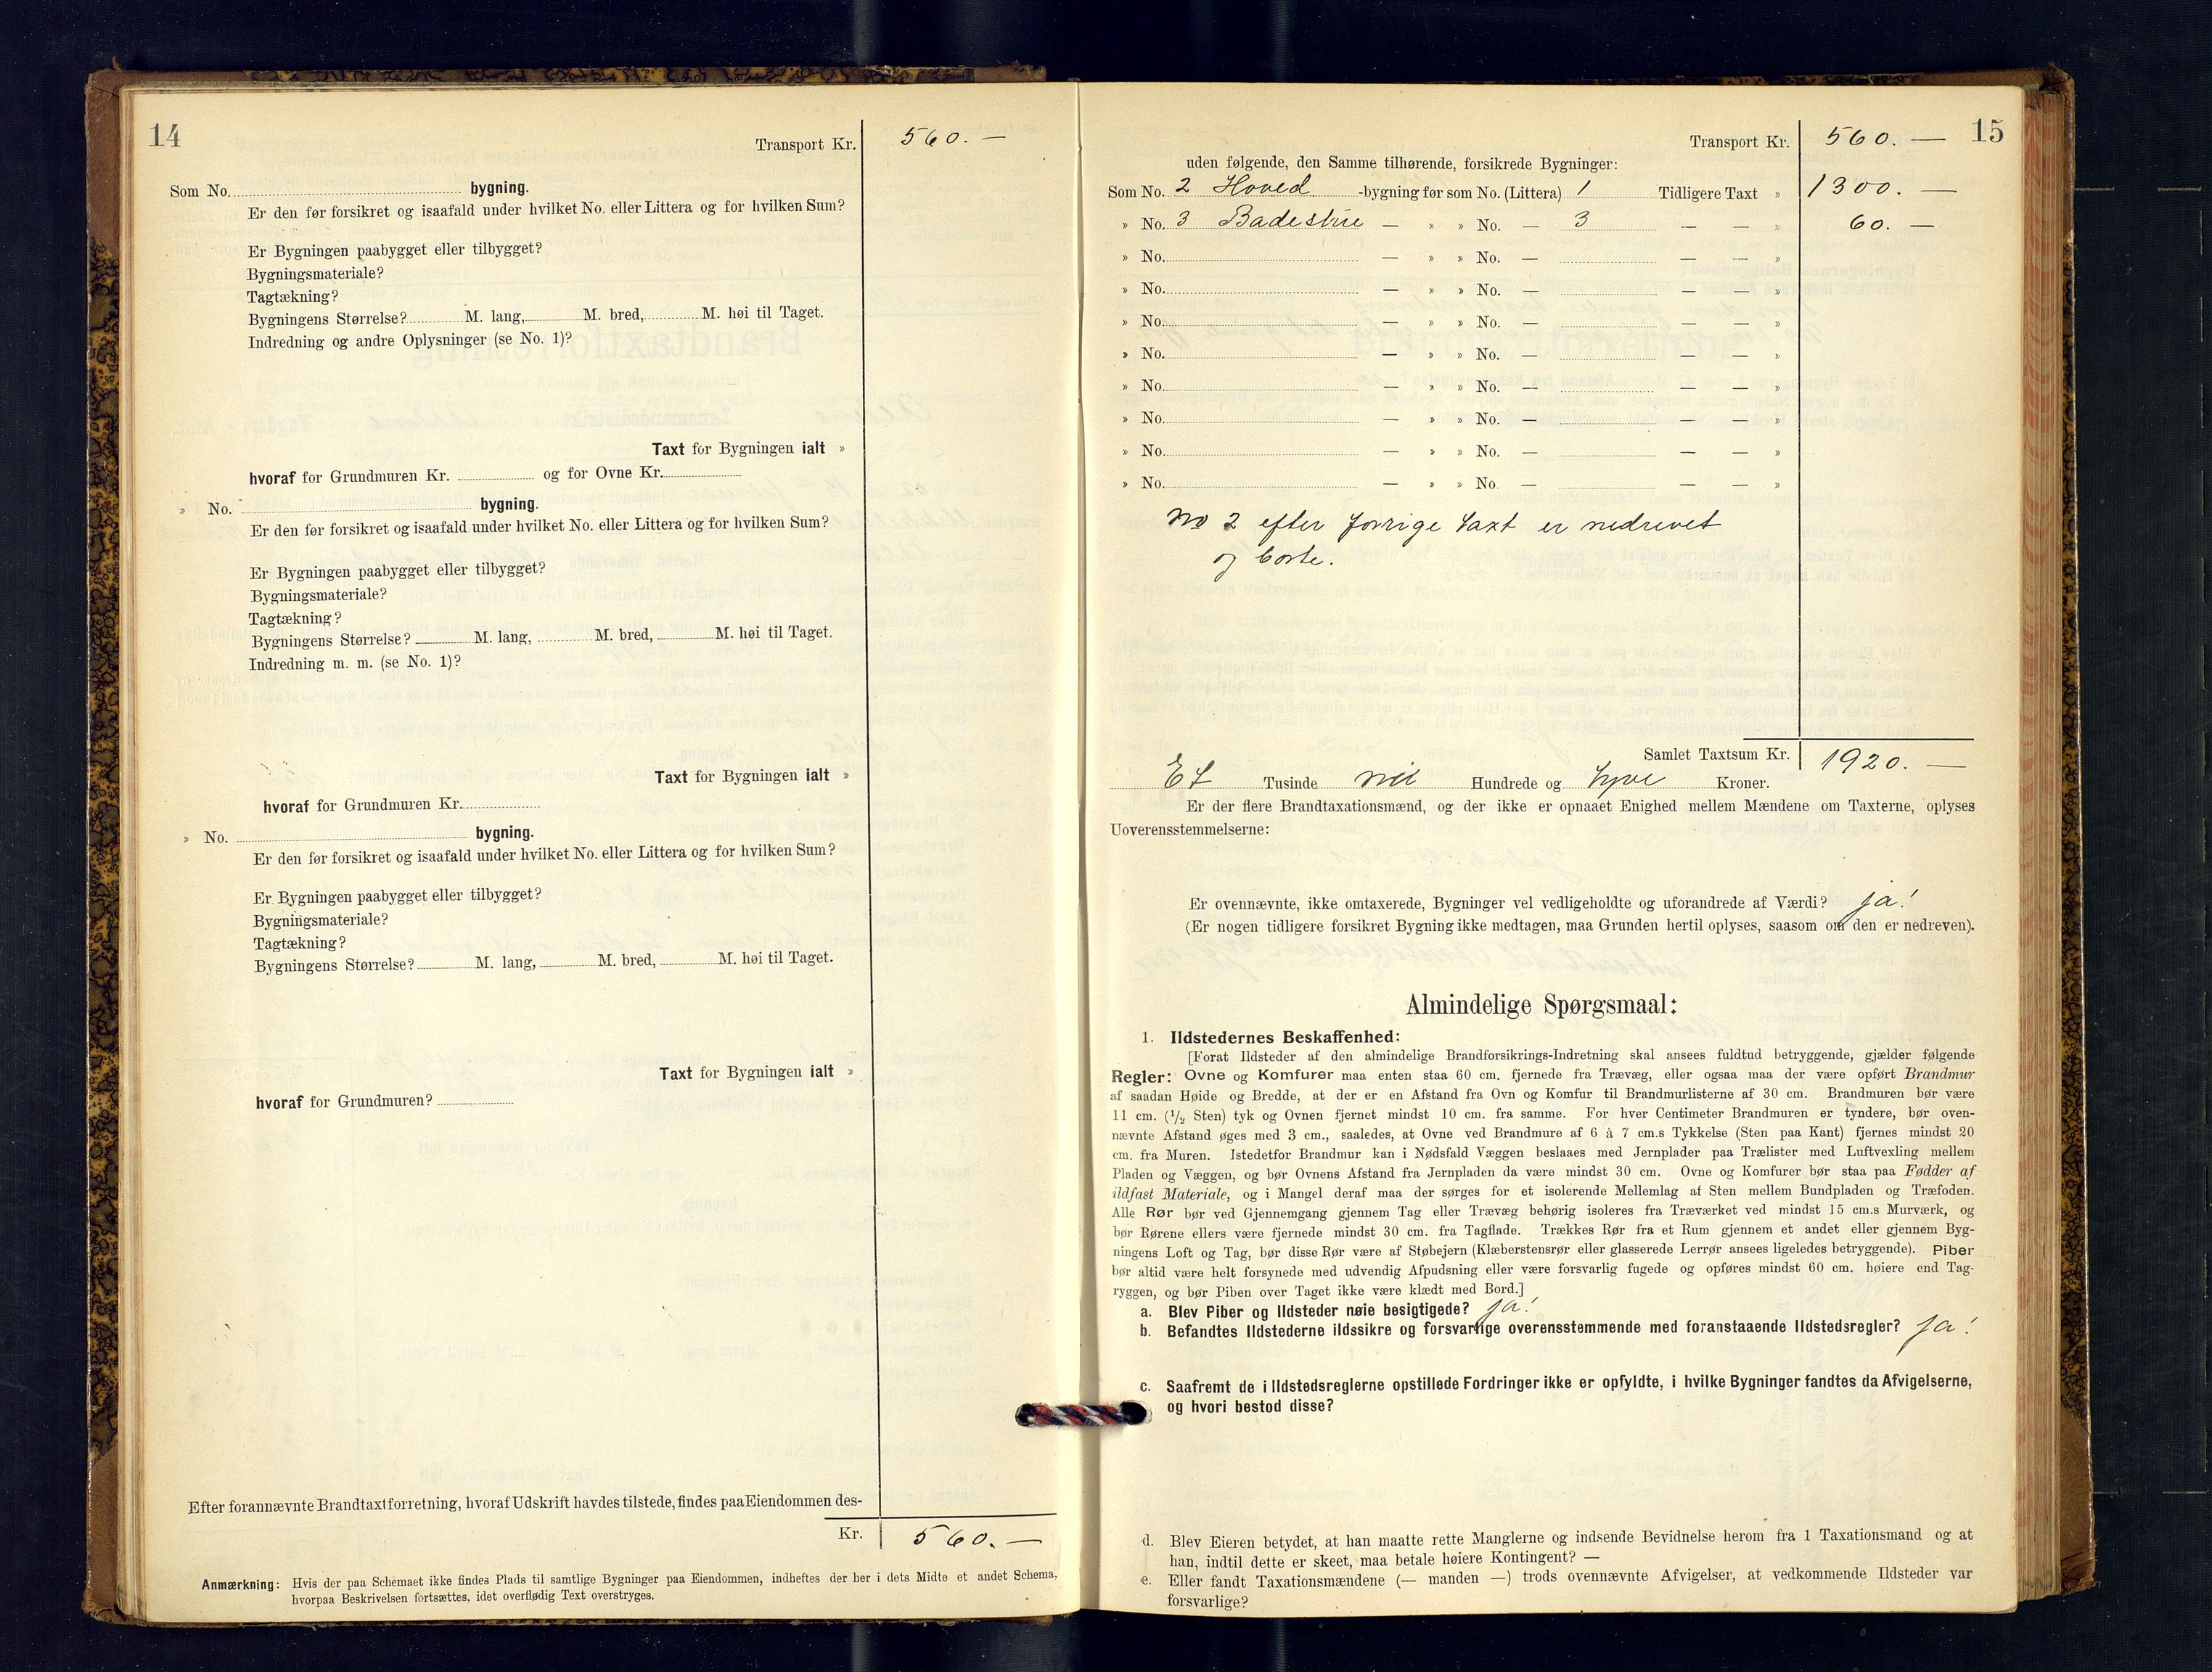 14
Transport Kr. 560. —
Som No. bygning.
Er den før forsikret og isaafald under hvilket No. eller Littera og for hvilken Sum?
Er Bygningen paabygget eller tilbygget?
Bygningsmateriale?
Tagtækning?
Bygningens Størrelse? M. lang, M. bred, M. høi til Taget.
Indredning og andre Oplysninger (se No. 1)?
Taxt for Bygningen ialt »
hvoraf for Grundmuren Kr. og for Ovne Kr.
» No. bygning.
Er den før forsikret og isaafald under hvilket No. eller Littera og for hvilken Sum?
Er Bygningen paabygget eller tilbygget?
Bygningsmateriale?
Tagtækning?
Bygningens Størrelse? M. lang, M. bred, M. høi til Taget.
Indredning m. m. (se No. 1)?
Taxt for Bygningen ialt »
hvoraf for Grundmuren Kr.
» No. bygning.
Er den før forsikret og isaafald under hvilket No. eller Littera og for hvilken Sum?
Er Bygningen paabygget eller tilbygget?
Bygningsmateriale?
Tagtækning?
Bygningens Størrelse? M. lang, M. bred, M. høi til Taget.
Taxt for Bygningen ialt »
hvoraf for Grundmuren?
Efter forannævnte Brandtaxtforretning, hvoraf Udskrift havdes tilstede, findes paa Eiendommen des-
Kr. 560. —
Anmærkning: Hvis der paa Schemaet ikke findes Plads til samtlige Bygninger paa Eiendommen, indheftes der her i dets Midte et andet Schema,
hvorpaa Beskrivelsen fortsættes, idet overflødig Text overstryges.
15
Transport Kr. 560. —
uden følgende, den Samme tilhørende, forsikrede Bygninger:
Som No. 2 Hoved -bygning før som No. (Littera) 1 Tidligere Taxt » 1300. —
» No. 3 Badestue — » » No. — 3 — — » 60. —
» No. — » » No. — — — »
» No. — » » No. — — — »
» No. — » » No. — — — »
» No. — » » No. — — — »
» No. — » » No. — — — »
» No. — » » No. — — — »
» No. — » » No. — — — »
» No. — » » No. — — — »
No 2 efter forrige taxt er nedrevet
og borte.
Samlet Taxtsum Kr. 1920. —
Et Tusinde ni Hundrede og tyve Kroner.
Er der flere Brandtaxationsmænd, og der ikke er opnaaet Enighed mellem Mændene om Taxterne, oplyses
Uoverensstemmelserne:
Er ovennævnte, ikke omtaxerede, Bygninger vel vedligeholdte og uforandrede af Værdi? ja!
(Er nogen tidligere forsikret Bygning ikke medtagen, maa Grunden hertil oplyses, saasom om den er nedreven).
Almindelige Spørgsmaal:
1. Ildstedernes Beskaffenhed:
[Forat Ildsteder af den almindelige Brandforsikrings-Indretning skal ansees fuldtud betryggende, gjælder følgende
Regler: Ovne og Komfurer maa enten staa 60 cm. fjernede fra Trævæg, eller ogsaa maa der være opført Brandmur
af saadan Høide og Bredde, at der er en Afstand fra Ovn og Komfur til Brandmurlisterne af 30 cm. Brandmuren bør være
11 cm. (1/2 Sten) tyk og Ovnen fjernet mindst 10 cm. fra samme. For hver Centimeter Brandmuren er tyndere, bør oven-
nævnte Afstand øges med 3 cm., saaledes, at Ovne ved Brandmure af 6 à 7 cm.s Tykkelse (Sten paa Kant) fjernes mindst 20
cm. fra Muren. Istedetfor Brandmur kan i Nødsfald Væggen beslaaes med Jernplader paa Trælister med Luftvexling mellem
Pladen og Væggen, og bør Ovnens Afstand fra Jernpladen da være mindst 30 cm. Ovne og Komfurer bør staa paa Fødder af
ildfast Materiale, og i Mangel deraf maa der sørges for et isolerende Mellemlag af Sten mellem Bundpladen og Træfoden.
Alle Rør bør ved Gjennemgang gjennem Tag eller Trævæg behørig isoleres fra Træværket ved mindst 15 cm.s Murværk, og
bør Rørene ellers være fjernede mindst 30 cm. fra Tagflade. Trækkes Rør fra et Rum gjennem et andet eller gjennem Byg-
ningens Loft og Tag, bør disse Rør være af Støbejern (Klæberstensrør eller glasserede Lerrør ansees ligeledes betryggende). Piber
bør altid være helt forsynede med udvendig Afpudsning eller være forsvarlig fugede og opføres mindst 60 cm. høiere end Tag-
ryggen, og bør Piben over Taget ikke være klædt med Bord.]
a. Blev Piber og Ildsteder nøie besigtigede? ja!
b. Befandtes Ildstederne ildssikre og forsvarlige overensstemmende med foranstaaende Ildstedsregler? ja!
c. Saafremt de i Ildstedsreglerne opstillede Fordringer ikke er opfyldte, i hvilke Bygninger fandtes da Afvigelserne,
og hvori bestod disse?
d. Blev Eieren betydet, at han maatte rette Manglerne og indsende Bevidnelse herom fra 1 Taxationsmand og at
han, indtil dette er skeet, maa betale høiere Kontingent? —
e. Eller fandt Taxationsmændene (— manden —) trods ovennævnte Afvigelser, at vedkommende Ildsteder var
forsvarlige?